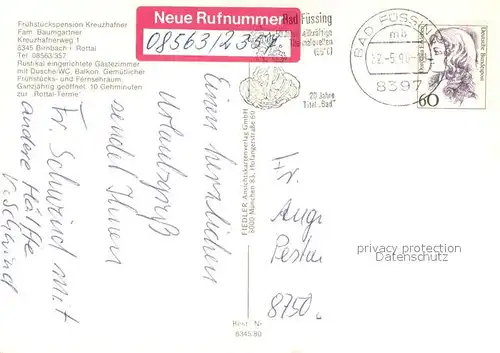 Frühstückspension Kreuzhafner
Fam. Baumgartner
Kreuzhafnerweg 1
8345 Birnbach i. Rottal
Tel. 08563/357
Rustikal eingerichtete Gästezimmer
mit Dusche/WC, Balkon. Gemütlicher
Frühstücks- und Fernsehraum.
Ganzjährig geöffnet. 10 Gehminuten
zur „Rottal-Terme"
Neue Rufnummer
08563/2357
Bad Füssing
(56°C)
20 Jahre
Titel „Bad"
BAD FÜSSING
mb
22.-5.90
8397
Deutsche Bundespost
60
Einen herzlichen
Urlaubsgruß
sendet Ihnen
Fr. Schwind mit
andere Hälfte
FIEDLER Ansichtskartenverlag GmbH
8000 München 83, Hofangerstraße 60
Hr.
Angu
Pesta
8750
privacy protection
Datenschutz
Best. Nr.
8345/80